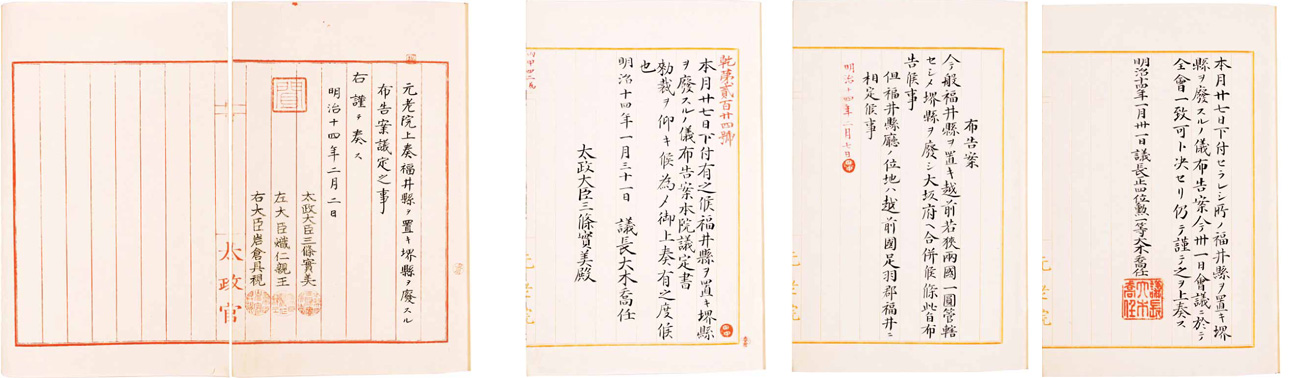 本月廿七日下付セラレシ所ノ福井縣ヲ置キ堺
縣ヲ廢スルノ儀布告案今卅一日會議ニ於テ
全會一致可ト决セリ仍テ謹テ之ヲ上奏ス
明治十四年一月卅一日議長正四位勳一等大木喬任
議長
大木
喬任
布告案
今般福井縣ヲ置キ越前若狹兩國一圓管轄
セシメ堺縣ヲ廢シ大坂府ヘ合併候條此旨布
告候事
但福井縣廳ノ位地ハ越前國足羽郡福井ニ
相定候事
明治十四年二月七日
元老院
乾第貳百廿四號
本月廿七日下付有之候福井縣ヲ置キ堺縣
ヲ廢スルノ儀布告案本院議定書
勅裁ヲ仰キ候為メ御上奏有之度候
也
明治十四年一月三十一日 議長大木喬任
太政大臣三條實美殿
元老院上奏福井縣ヲ置キ堺縣ヲ廢スル
布告案議定之事
右謹テ奏ス
明治十四年二月二日
太政大臣三條實美
左大臣熾仁親王
右大臣岩倉具視
太政官